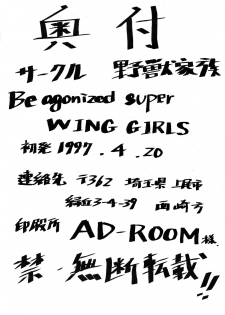 奥付
サークル 野獣家族
Be agonized super
WING GIRLS
初発 1997.4.20
連絡先 〒362 埼玉県上尾市
緑丘3-4-39 西崎方
印刷所 AD-ROOM様
禁・無断転載!!